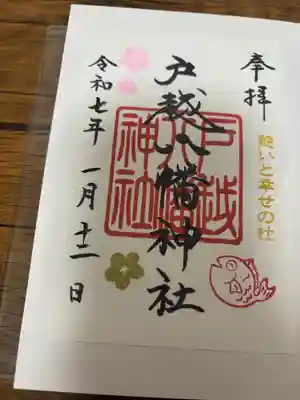 奉拝
願いと幸せの社
戸越八幡神社
戸越八幡神社
令和七年 一月十一日